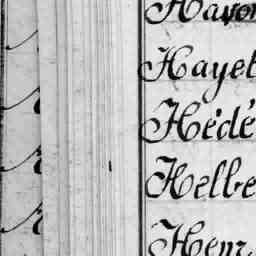 Havon
Hayet
Hédé
Helbe
Henr